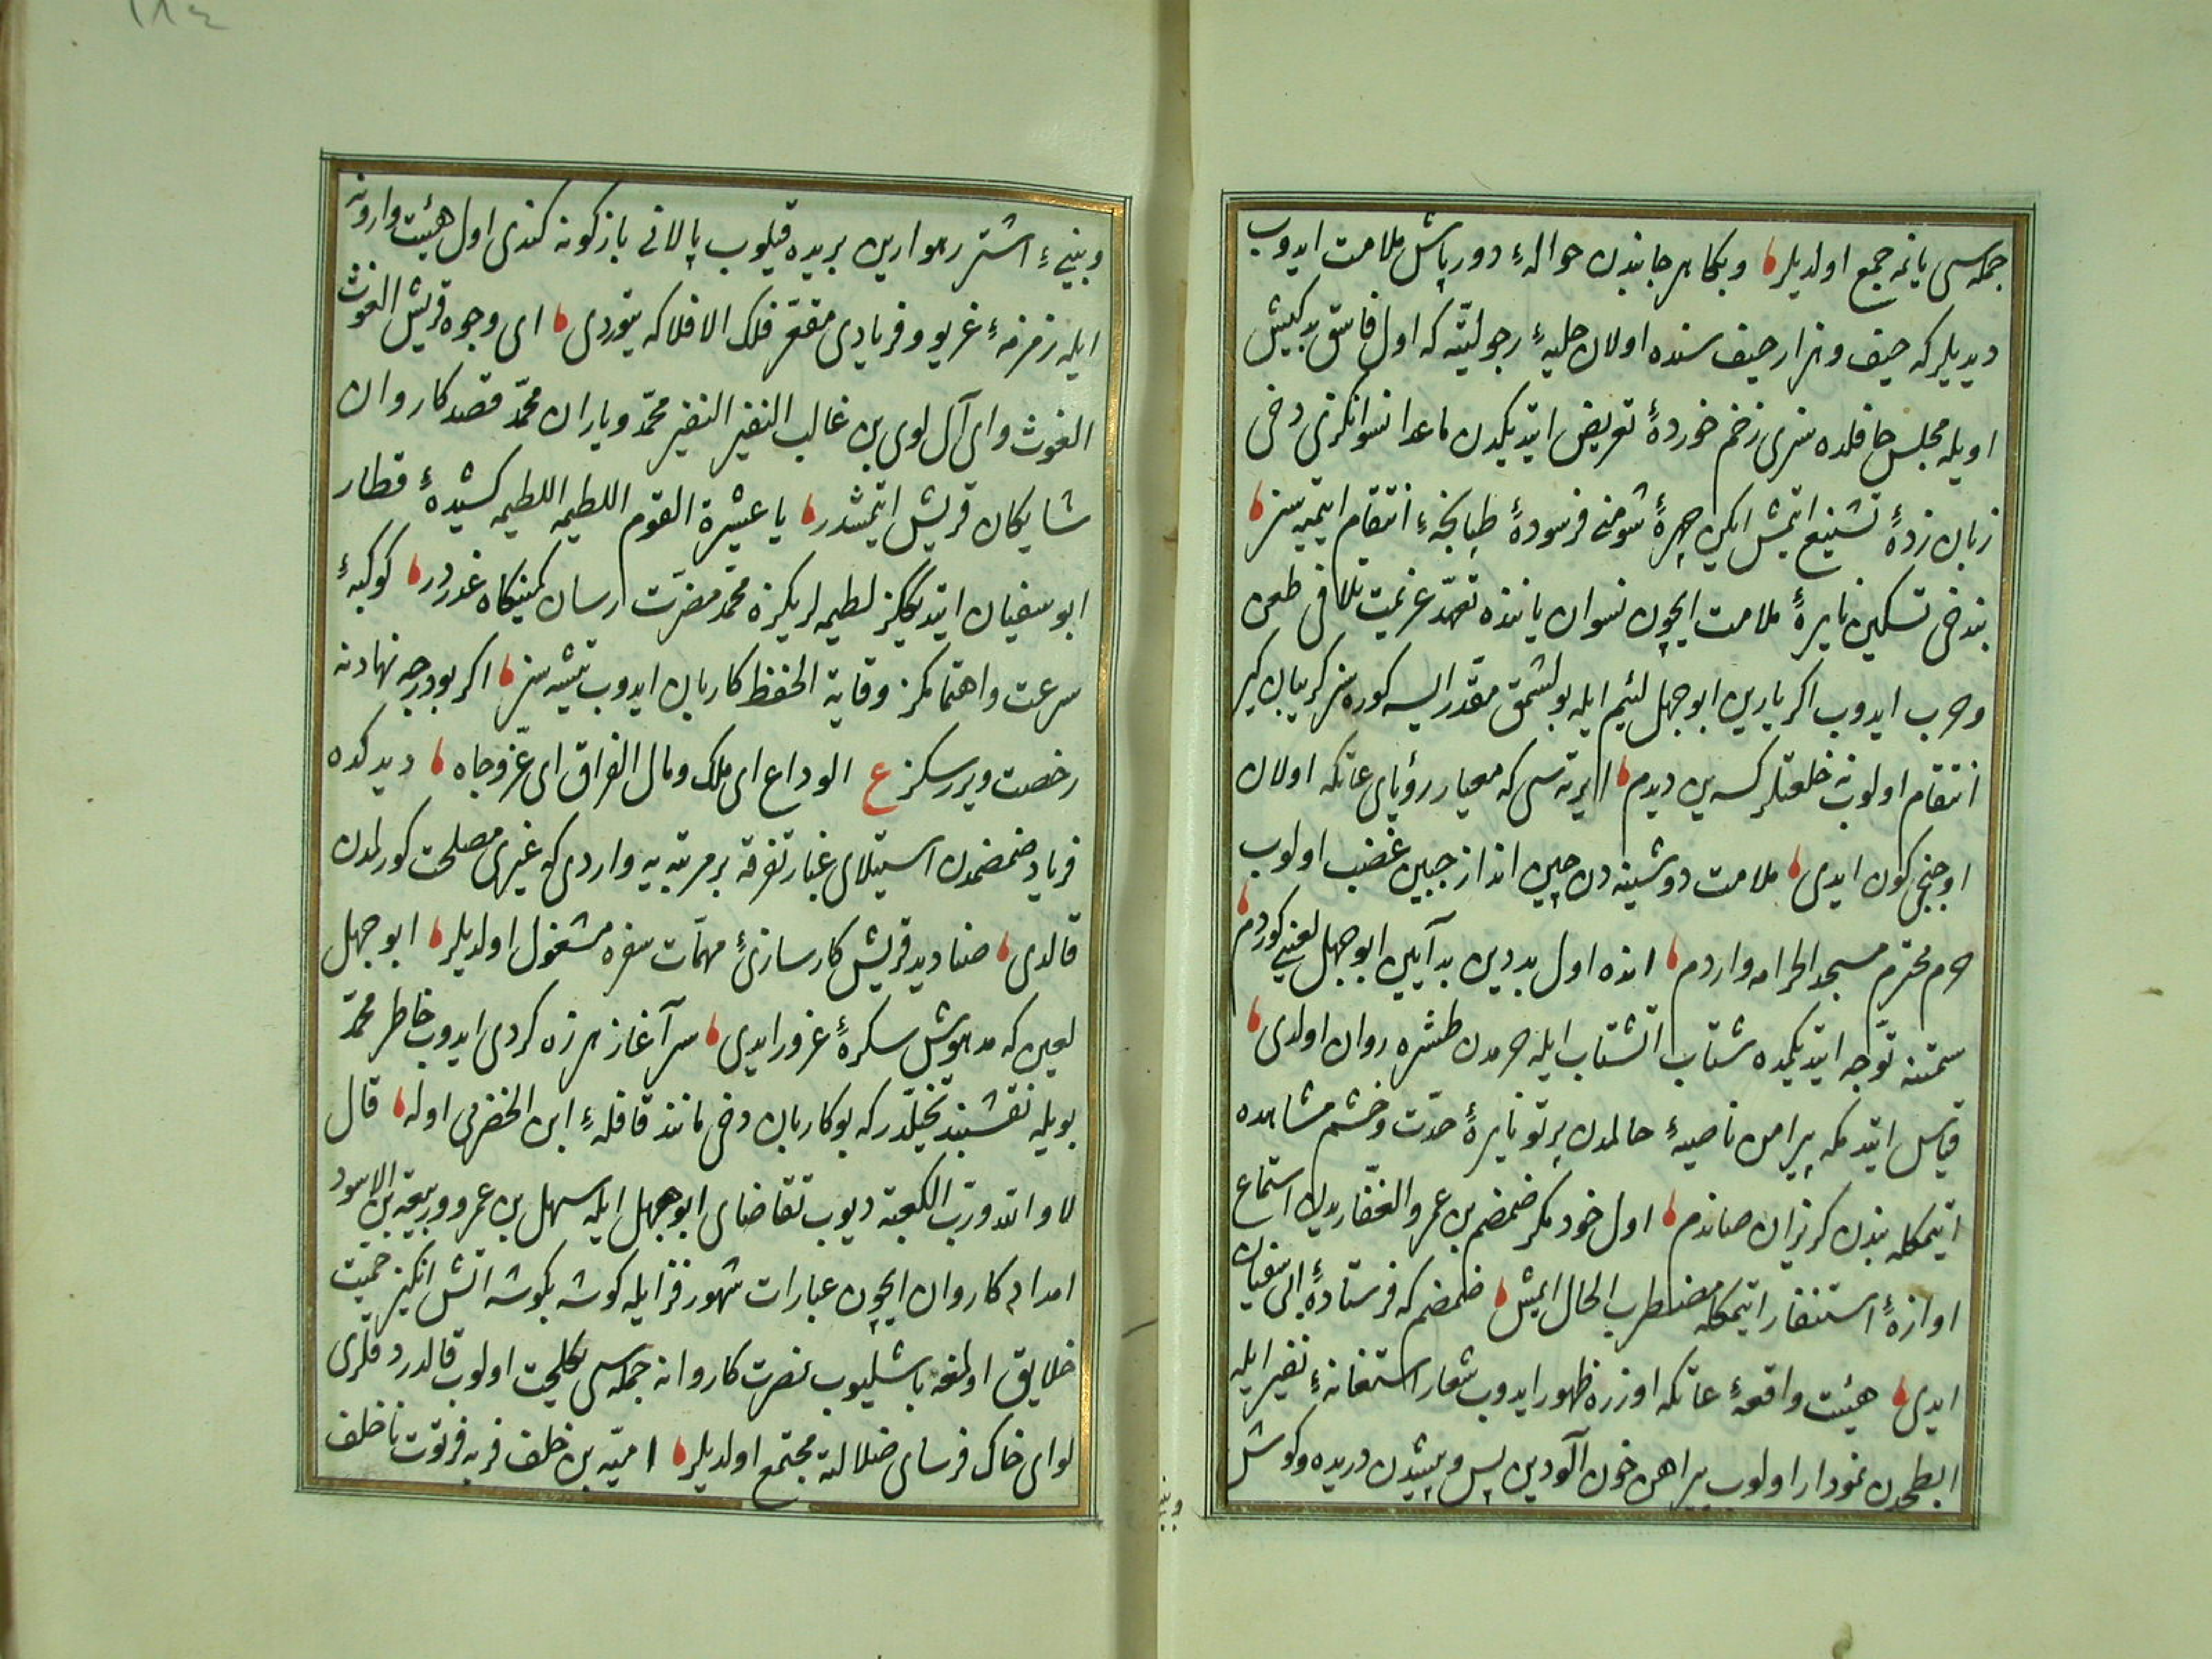 جمله‌سی یانمه جمع اولدیلر وبکا هر جانبدن حوالهٔ دورباش ملامت ایدوب
دیدیلر که حیف وهزار حیف سنده اولان حلیهٔ رجولیّته که اول فاسق بدکیش
اویله مجلس حافلده سنری زخم خوردهٔ تعریض ایتدیکدن ماعدا نسوانکزی دخی
زبان زدهٔ تشنیع ایتمش ایکن چهرهٔ شومنی فرسودهٔ طپانچهٔ انتقام ایتمیه سز
بندخی تسکین نایرهٔ ملامت ایچون نسوان یاننده تعهّد عزیمت تلافی طعن
وضرب ایدوب اکر یارین ابو جهل لئیم ایله بولشمق مقدّر ایسه کوره سز کریبان کیر
انتقام اولوب نه خلعتلر کسه‌ین دیدم ایرته‌سی که معیار رؤیای عاتکه اولان
اوچنجی کون ایدی ملامت دوشینه دن چین انداز جبین غضب اولوب
حرم محترم مسجد الحرامه واردم انده اول بد دین بد آیین ابو جهل لعینی کوردم
سمتنه توجّه ایتدیکمده شتاب آتشتاب ایله حرمدن طشره روان اولدی
قیاس ایتدم که پیرامن ناصیهٔ حالمدن پرتو نایرهٔ حدّت وخشم مشاهده
ایتمکله بندن کریزان صاندم اول خود مکر ضمضم بن عمرو الغفاریدن استماع
اوازهٔ استنفار ایتمکله مضطرب الحال ایمش ضمضم که فرستادهٔ ابی سفیان
ایدی هیئت واقعهٔ عاتکه اوزره ظهور ایدوب شعار استغاثهٔ نفیر ایله
ابطحدن نمودار اولوب پیراهن خون آلودین پس وپیشدن دریده وکوش
وبینیٔ اشتر رهوارین بریده قیلوب پالانی بازکونه کندی اول هیئت وارونه
ایله زمزمهٔ غریو وفریادی مقعّر فلک الافلاکه یتوردی ای وجوه قریش الغوث
الغوث وای آل لوی بن غالب النفیر النفیر محمّد ویاران محمّد قصد کاروان
شایکان قریش ایتمشدر یا عشیرة القوم اللطیمه اللطیمه کشیدهٔ قطار
ابو سفیان ایتدیککز لطیمه لریکزه محمّد مضرّت رسان کمینکاه غدردر کوکبهٔ
سرعت واهتمامکز وقایة الحفظ کاربان ایدوب یتیشه سز اکر بو درجه نهاونه
رخصت ویررسکز ع الوداع ای ملک ومال الفراق ای عزّ وجاه دیدکده
فریاد ضمضمدن استیلای غبار تفرقه بر مرتبه یه واردی که غیری مصلحت کورلمدن
قالدی صنادید قریش کارسازیٔ مهمّات سفره مشغول اولدیلر ابو جهل
لعین که مدهوش سکرهٔ غرور ایدی سر آغاز هرزه کردی ایدوب خاطر محمّد
بویله نقشبند تخیلّدر که بو کاربان دخی مانند قافلهٔ ابن الحضرمی اوله قال
لا والله وربّ الکعبه دیوب تقاضای ابو جهل ایله سهیل بن عمرو وربیعة بن الاسود
امداد کاروان ایچون عبارات شهور فزا ایله کوشه بکوشه اتش انکیز حمیّت
خلایق اولمغه باشلیوب نصرت کاروانه جمله‌سی یکجهت اولوب قالدردقلری
لوای خاک فرسای ضلالته مجتمع اولدیلر امیّه بن خلف فربه فرتوت ناخلف